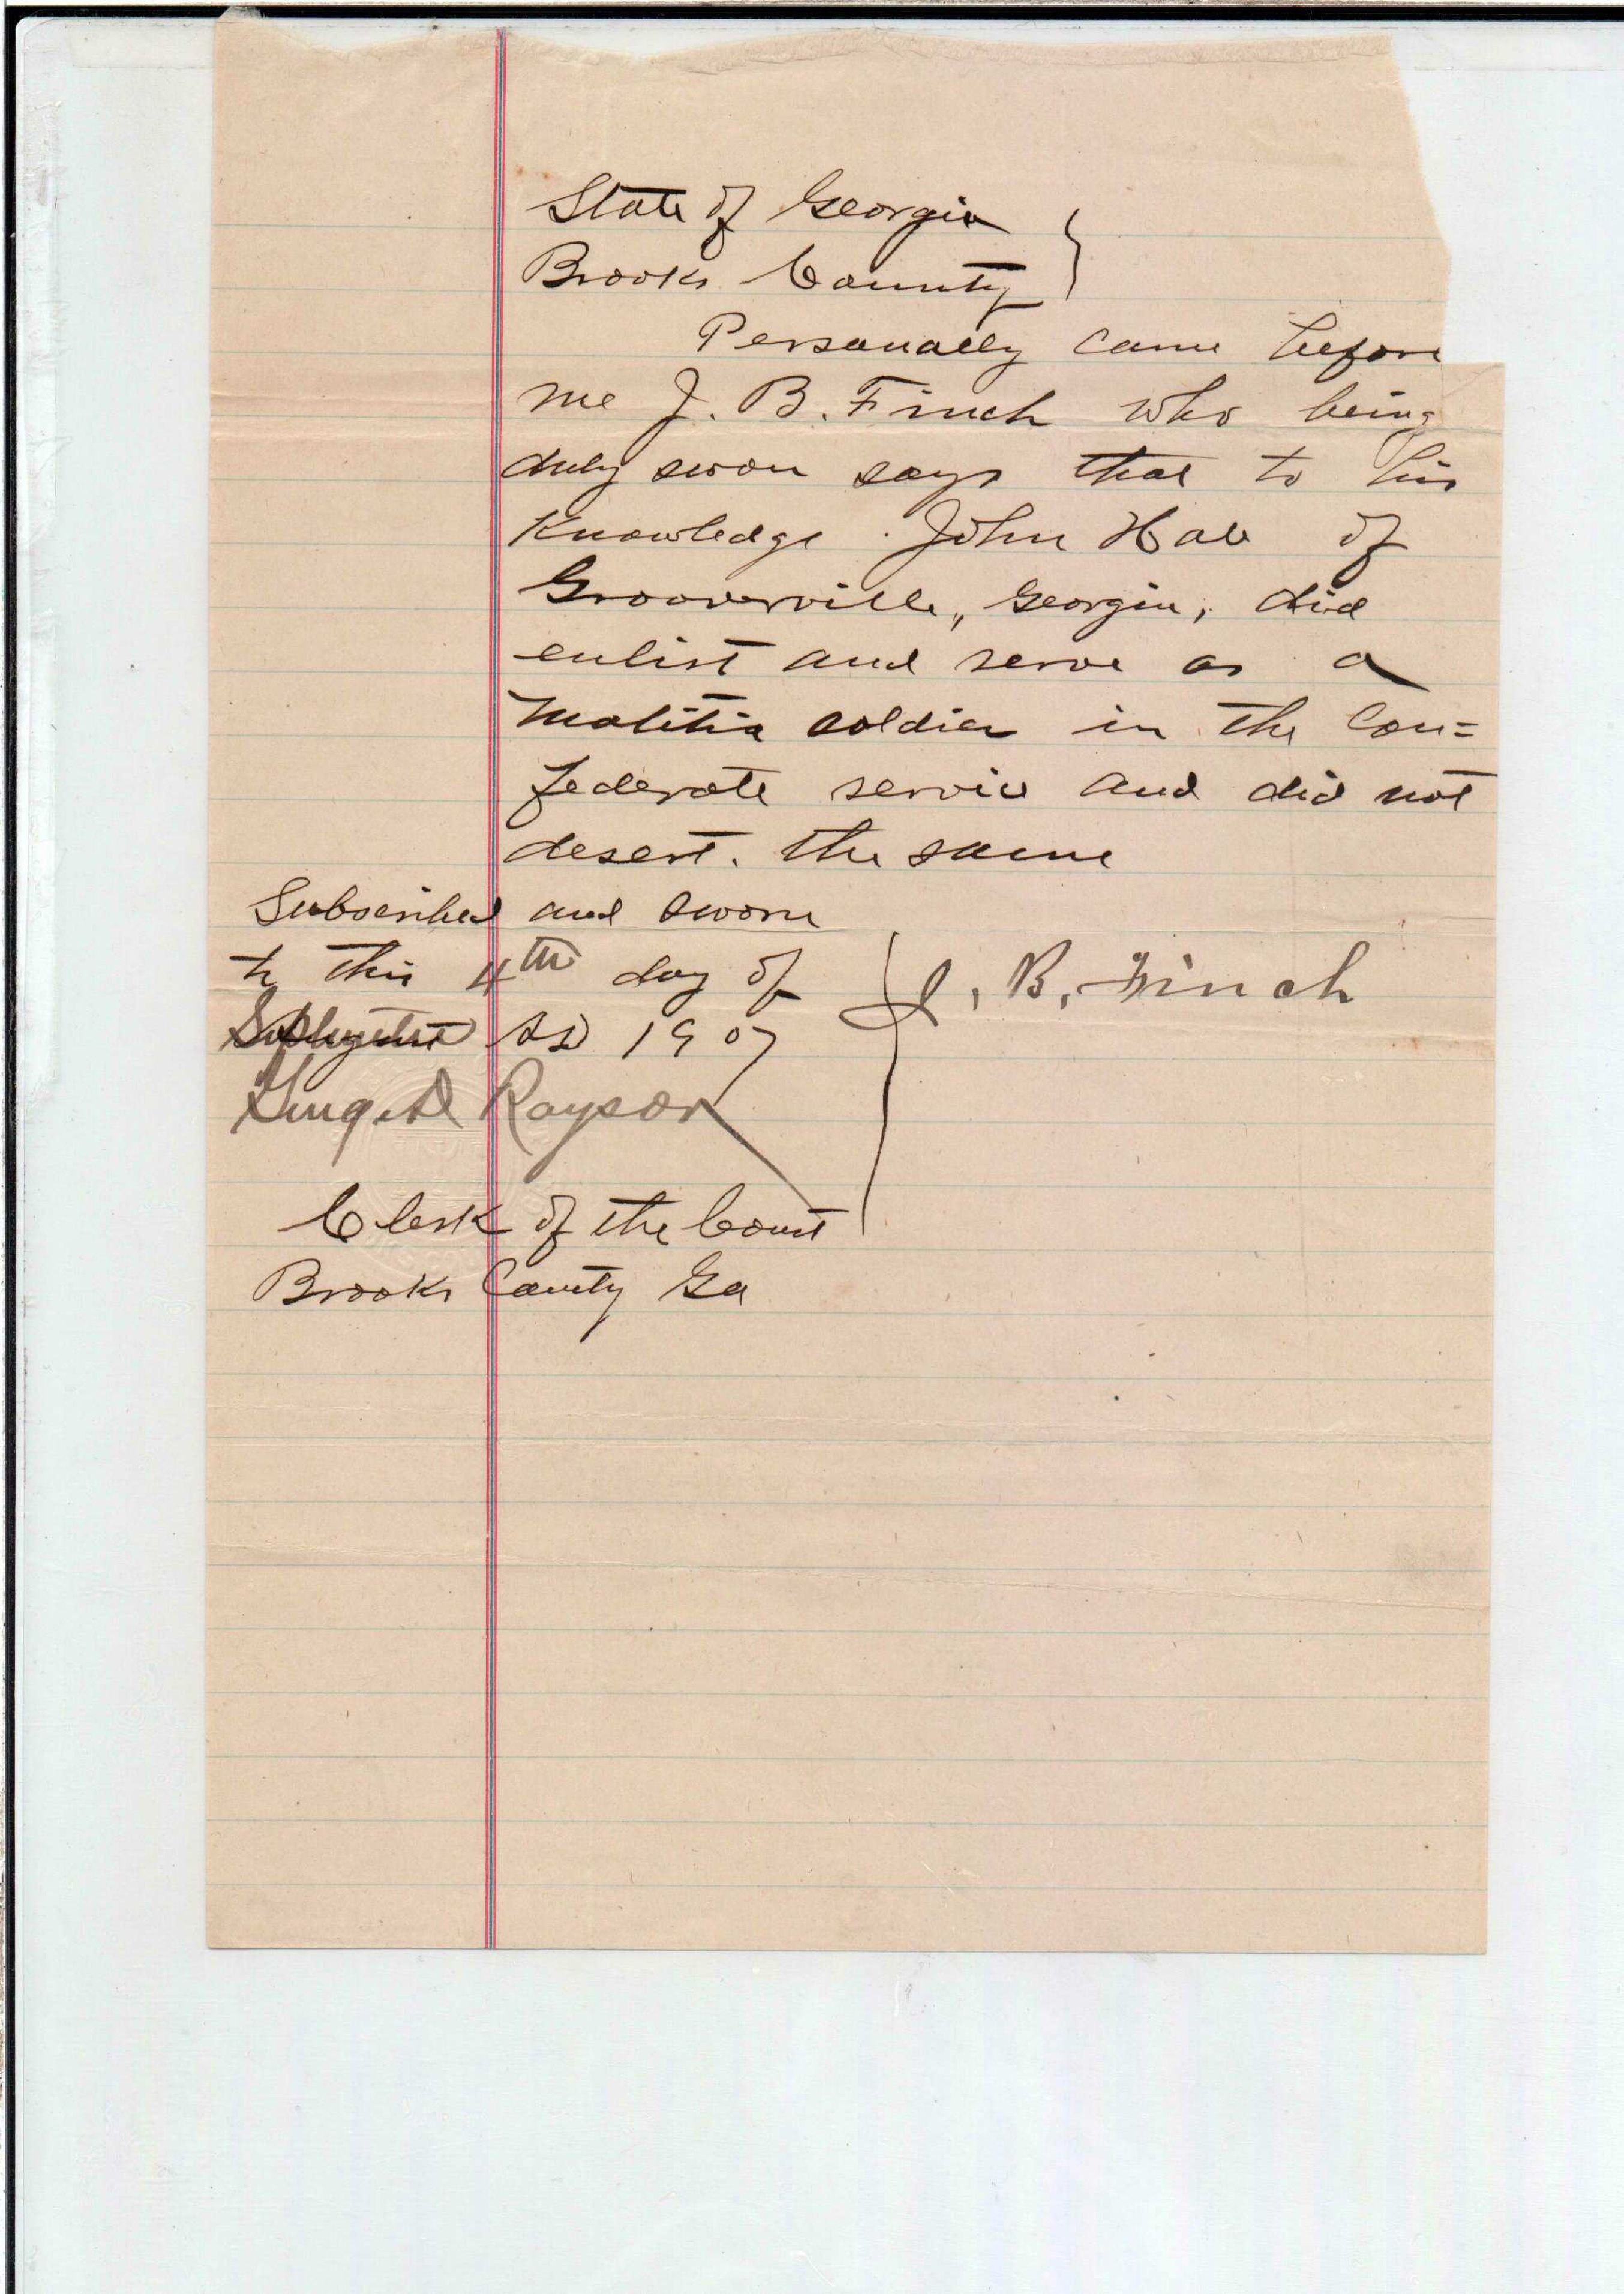 State of Georgia
Brooks County
Personally came before
me J. B. Finch who being
duly sworn says that to his
Knowledge John Hall of
Grooverville, Georgia, did
enlist and serve as a
Malitia soldier in the Con=
federate service and did not
desert. the same
Subscribed and sworn
to this 4th day of
AD 1907
J. B. Finch
Rayson
Clerk of the Court
Brooks County Ga